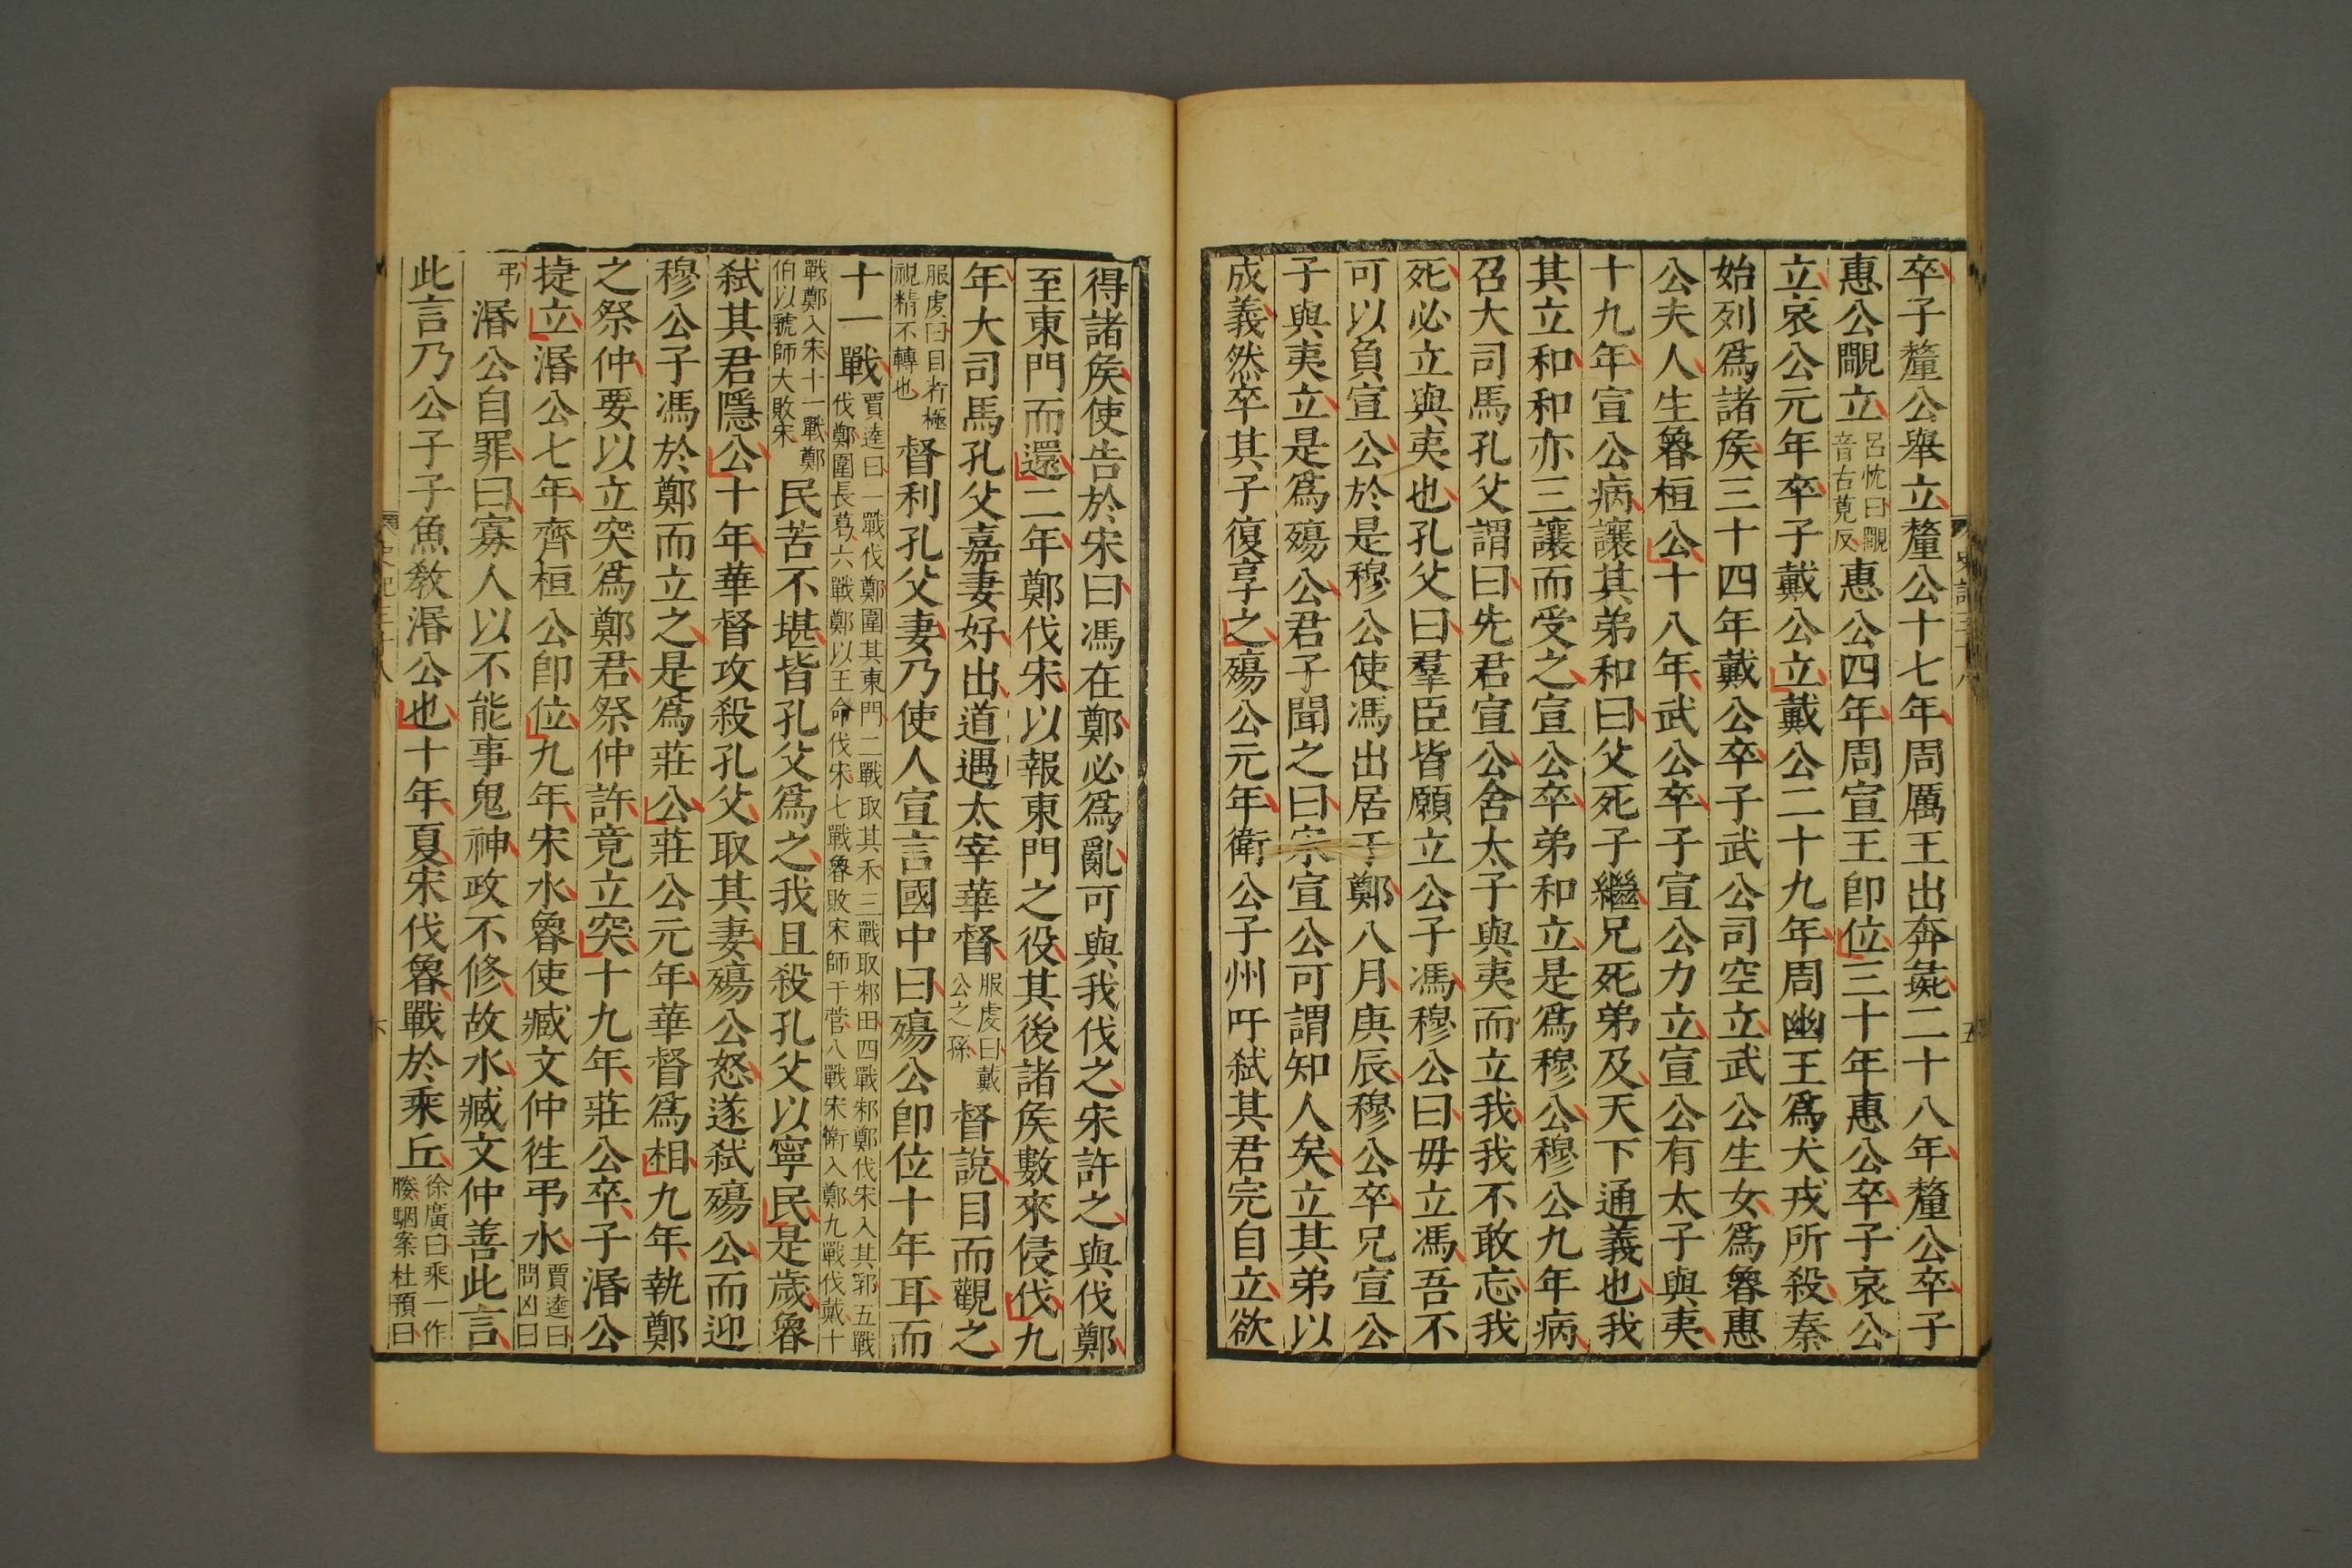 卒子釐公舉立釐公十七年周厲王出奔彘二十八年釐公卒子
惠公覵立呂忱曰覵音古莧反惠公四年周宣王卽位三十年惠公卒子哀公
立哀公元年卒子戴公立戴公二十九年周幽王爲犬戎所殺秦
始列爲諸矦三十四年戴公卒子武公司空立武公生女爲魯惠
公夫人生魯桓公十八年武公卒子宣公力立宣公有太子與夷
十九年宣公病讓其弟和曰父死子繼兄死弟及天下通義也我
其立和和亦三讓而受之宣公卒弟和立是爲穆公穆公九年病
召大司馬孔父謂曰先君宣公舍太子與夷而立我我不敢忘我
死必立與夷也孔父曰羣臣皆願立公子馮穆公曰毋立馮吾不
可以負宣公於是穆公使馮出居于鄭八月庚辰穆公卒兄宣公
子與夷立是爲殤公君子聞之曰宋宣公可謂知人矣立其弟以
成義然卒其子復享之殤公元年衛公子州吁弑其君完自立欲
得諸矦使告於宋曰馮在鄭必爲亂可與我伐之宋許之與伐鄭
至東門而還二年鄭伐宋以報東門之役其後諸矦數來侵伐九
年大司馬孔父嘉妻好出道遇太宰華督服虔曰戴公之孫督說目而觀之
服虔曰目者極視精不轉也督利孔父妻乃使人宣言國中曰殤公卽位十年耳而
十一戰賈逵曰一戰伐鄭圍其東門二戰取其禾三戰取邾田四戰邾鄭伐宋入其郛五戰伐鄭圍長葛六戰鄭以王命伐宋七戰魯敗宋師于菅八戰宋衛入鄭九戰伐戴十
戰鄭入宋十一戰鄭伯以虢師大敗宋民苦不堪皆孔父爲之我且殺孔父以寧民是歲魯
弑其君隱公十年華督攻殺孔父取其妻殤公怒遂弑殤公而迎
穆公子馮於鄭而立之是爲莊公莊公元年華督爲相九年執鄭
之祭仲要以立突爲鄭君祭仲許竟立突十九年莊公卒子湣公
捷立湣公七年齊桓公卽位九年宋水魯使臧文仲徃弔水賈逵曰問凶曰
弔湣公自罪曰寡人以不能事鬼神政不修故水臧文仲善此言
此言乃公子子魚敎湣公也十年夏宋伐魯戰於乘丘徐廣曰乘一作媵駰案杜預曰